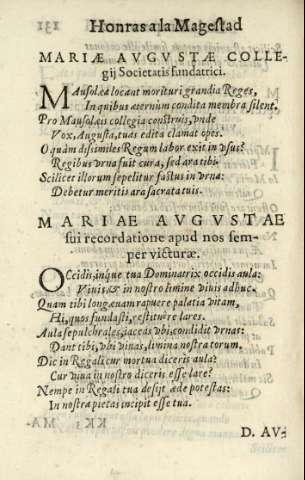 131 Honras a la Magestad
MARIÆ AVGVSTÆ COLLE-
gij Societatis fundatrici.
MAusolea locant morituri grandia Reges,
In quibus æternùm condita membra silent.
Pro Mausolæis collegia construis, vnde
Vox, Augusta, tuas edita clamat opes.
O quàm dissimiles Regum labor exit in vsus?
Regibus vrna fuit cura, sed ara tibi.
Scilicet illorum sepelitur fastus in vrna:
Debetur meritis ara sacrata tuis.
MARIAE AVGVSTAE
sui recordatione apud nos sem-
per victuræ.
OCcidis, inque tua Dominatrix occidis aula:
Viuis, & in nostro limine viuis adhuc.
Quam tibi longæuam rapuere palatia vitam,
Hi, quos fundasti, restituêre lares.
Aula sepulchrales, iaceas vbi, condidit vrnas:
Dant tibi, vbi viuas, limina nostra torum.
Dic in Regali cur mortua diceris aula?
Cur viua in nostro diceris esse lare?
Nempe in Regali tua desijt æde potestas:
In nostra pietas incipit esse tua.
KK 3
D. AV-